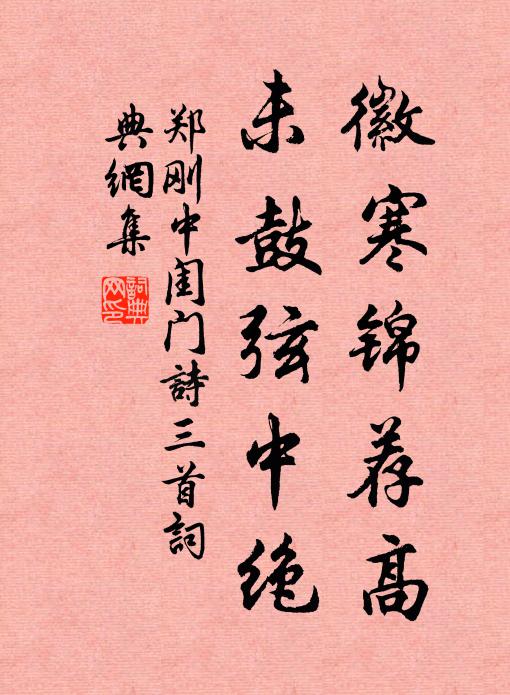 徽寒锦荐高
未鼓弦中绝
郑刚中闺门詩三首詞
典網集
詞典网印